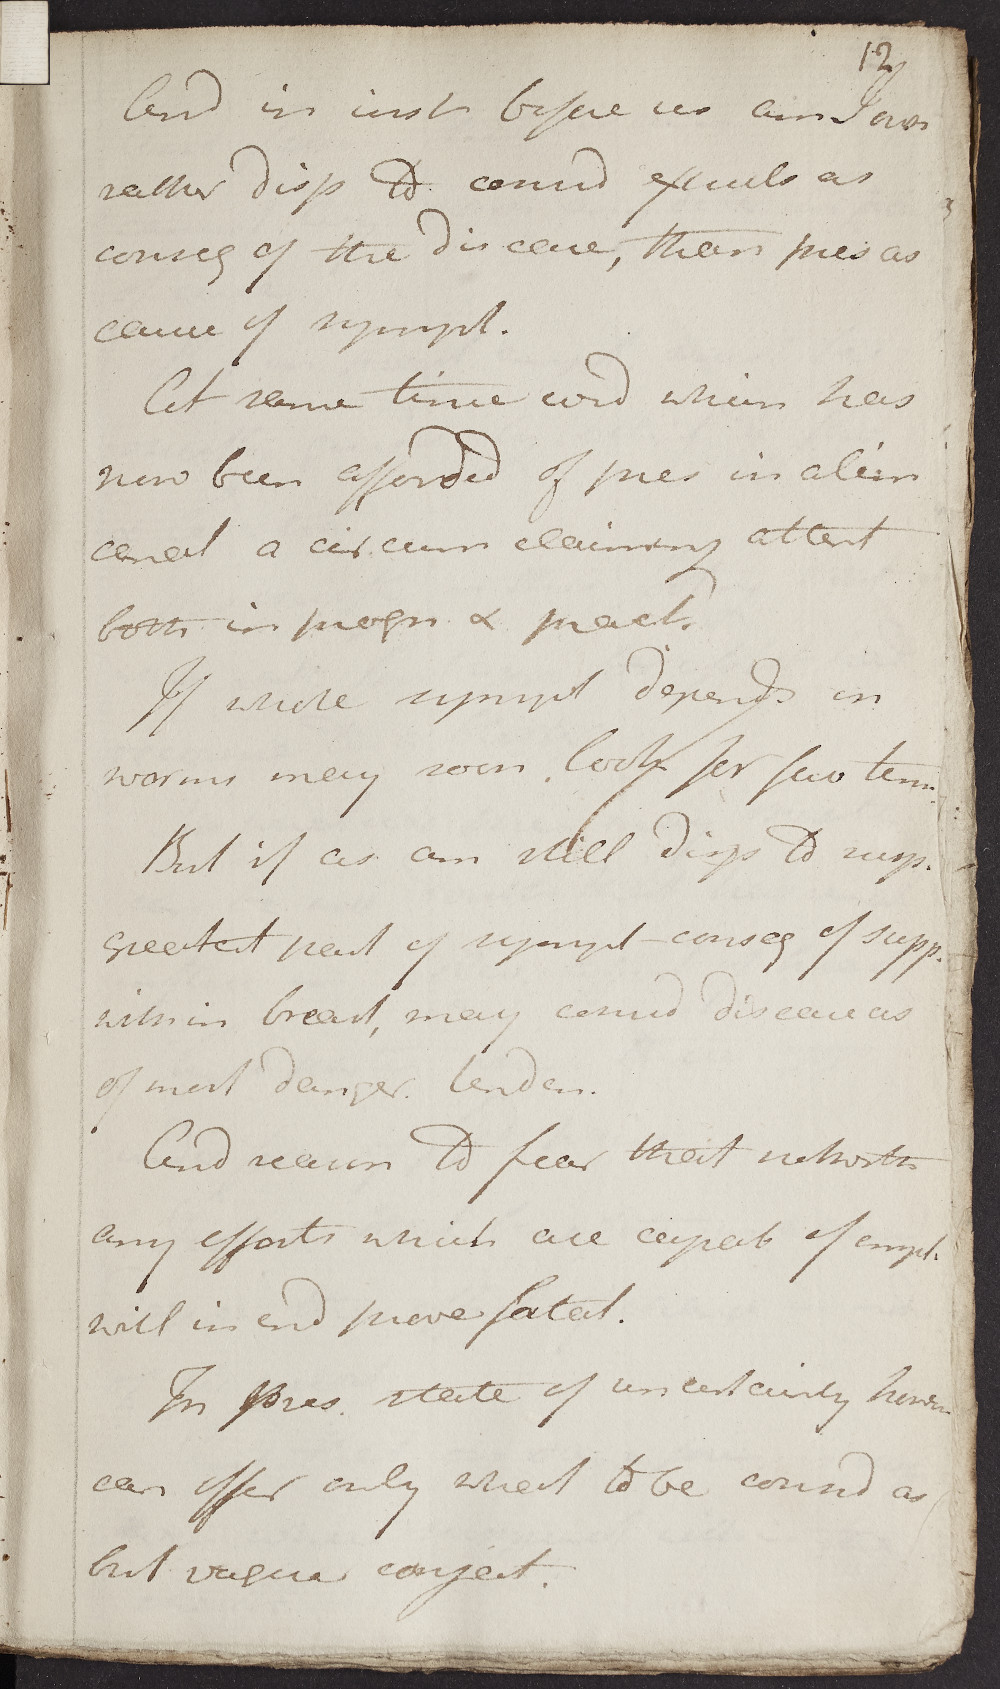 12
And in inst before us am I own
rather disp to consid expuls as
conseq of the disease, than pres as
cause of sympt.
At same time evid which has
now been afforded of pres in alim
canal a circum claiming attent
both in progn & pract.
If whole sympt depends on
worms may soon look for fav term.
But if as am still disp to susp.
greatest part of sympt conseq of supp.
within breast, may consid disease as
of most danger. tenden.
And reason to fear that notwith
any efforts which are capab of empl.
will in end prove fatal.
In pres. state of uncertainty howev
can offer only what to be consid as
but vague conject.